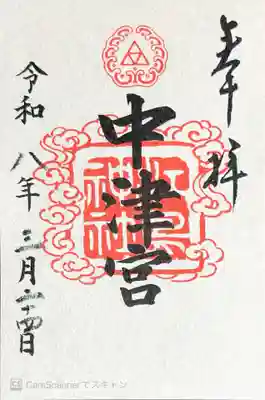 奉拝
中津宮
令和八年三月二十四日
CamScannerでスキャン